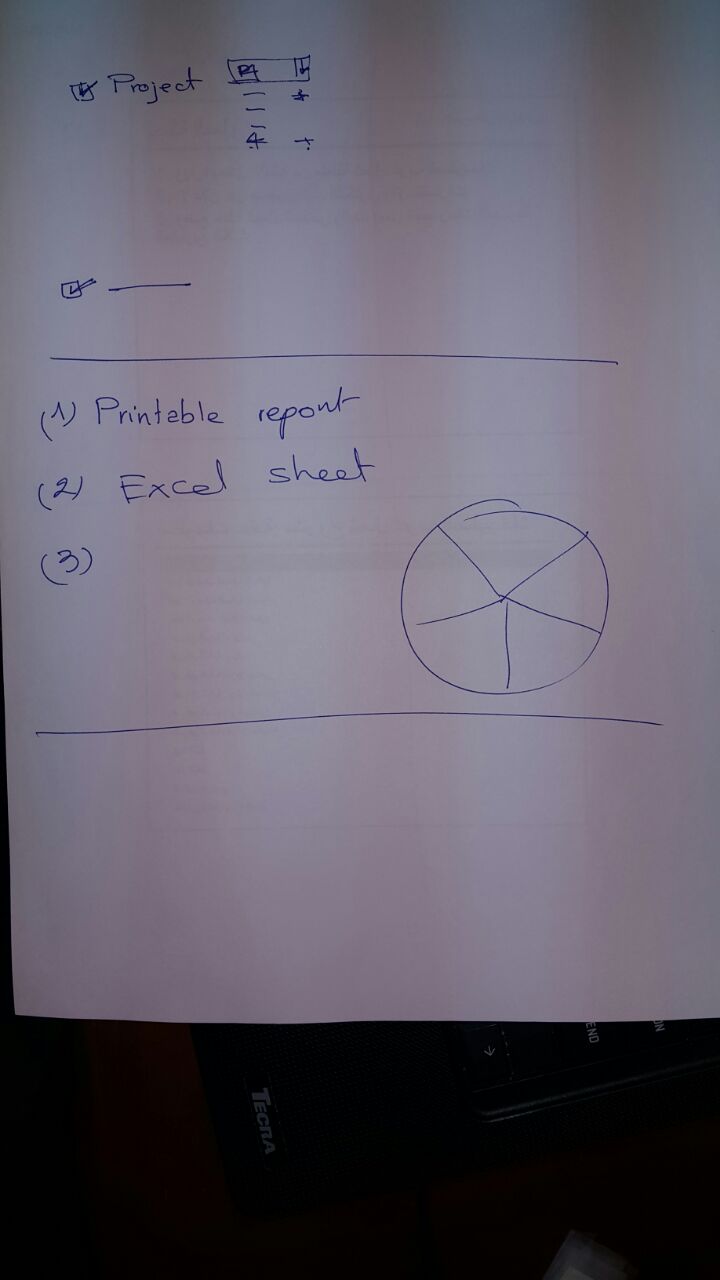 Project
(1) Printable report
(2) Excel sheet
(3)
END
TECRA